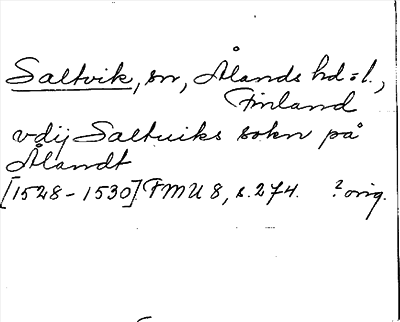 Saltvik, sn, Ålands hd o l.,
Finland
vdij Saltuiks sokn på
Ålandt
[1528-1530] FMU 8, s. 274. ? orig.